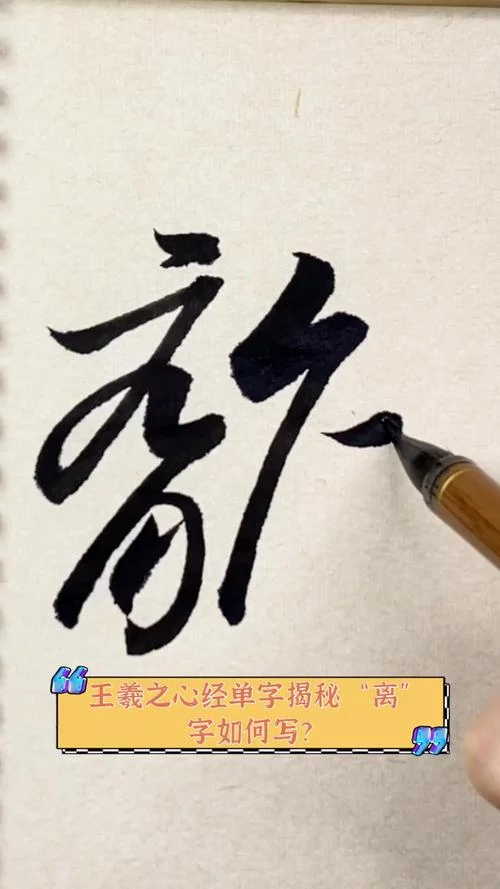 王羲之心经单字揭秘“离”
字如何写?